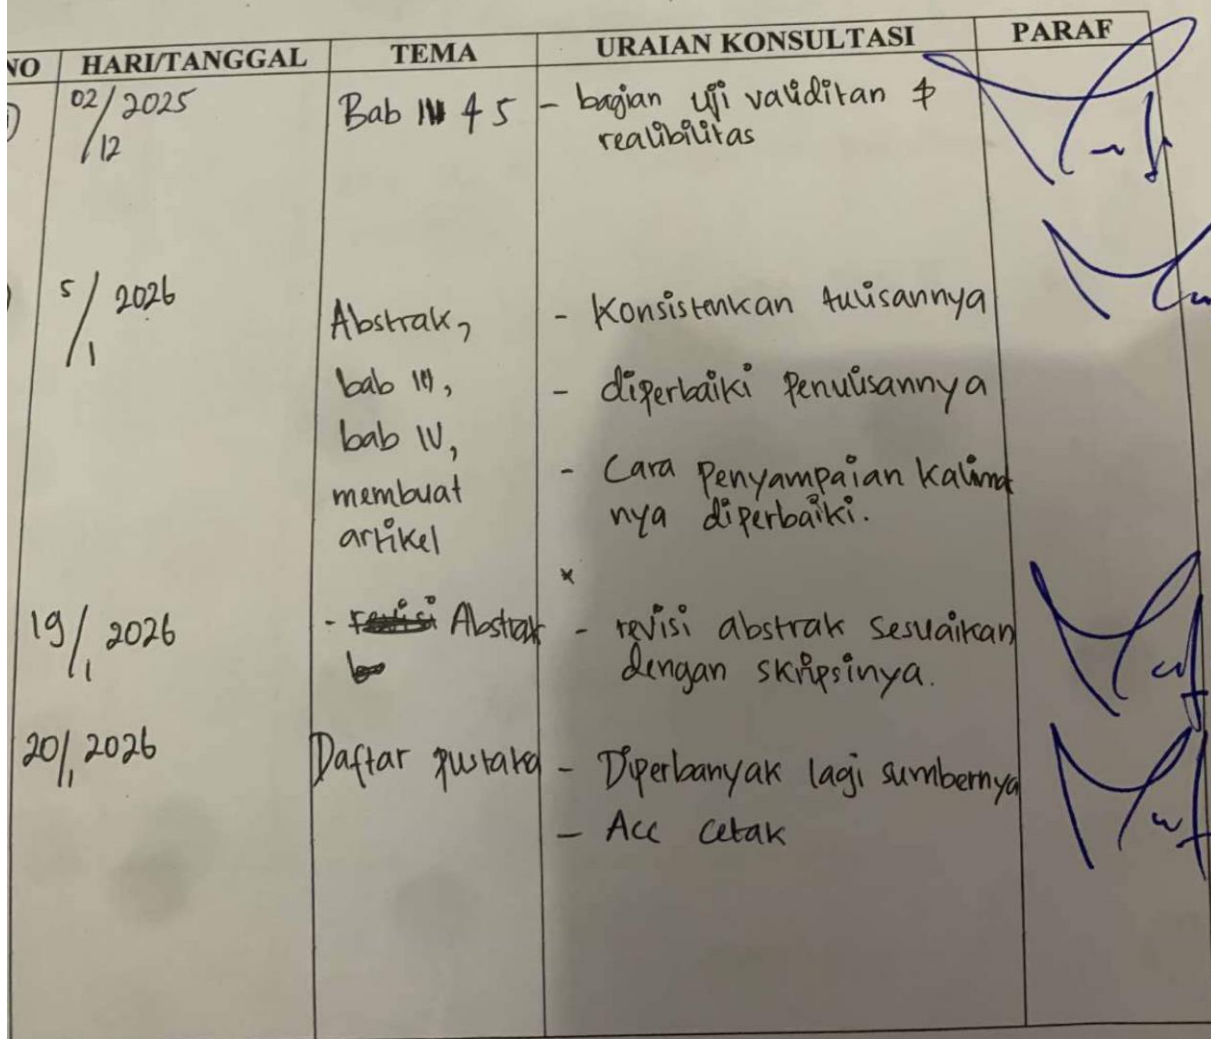 NO HARI/TANGGAL TEMA URAIAN KONSULTASI PARAF
02/12 2025 Bab 4 5 - bagian uji validitan &
realibilitas
5/1 2026 Abstrak, - Konsistenkan tulisannya
bab III, - diperbaiki Penulisannya
bab IV, - Cara Penyampaian Kalimat
membuat nya diperbaiki.
artikel
19/1 2026 - Abstrak - revisi abstrak sesuaikan
dengan skripsinya.
20/1 2026 Daftar pustaka - Diperbanyak lagi sumbernya
- Acc cetak